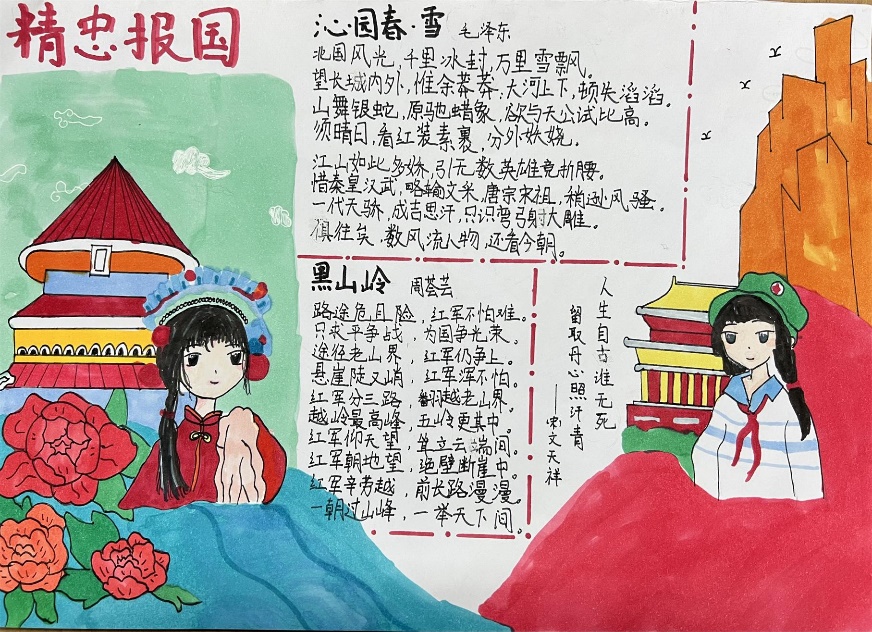 精忠报国
沁·园春·雪 毛泽东
北国风光,千里冰封,万里雪飘。
望长城内外,惟余莽莽;大河上下,顿失滔滔。
山舞银蛇,原驰蜡象,欲与天公试比高。
须晴日,看红装素裹,分外妖娆。
江山如此多娇,引无数英雄竞折腰。
惜秦皇汉武,略输文采,唐宗宋祖,稍逊风骚。
一代天骄,成吉思汗,只识弯弓射大雕。
俱往矣,数风流人物,还看今朝。
黑山岭 周荟芸
路途危且险,红军不怕难。
只求平争战,为国争光荣。
途径老山界,红军仍争上。
悬崖陡又峭,红军浑不怕。
红军分三路,翻越老山界。
越岭最高峰,五岭更其中。
红军仰天望,耸立云端间。
红军朝地望,绝壁断崖中。
红军辛劳越,前长路漫漫。
一朝过山峰,一举天下间。
人生自古谁无死
留取丹心照汗青
——宋文天祥